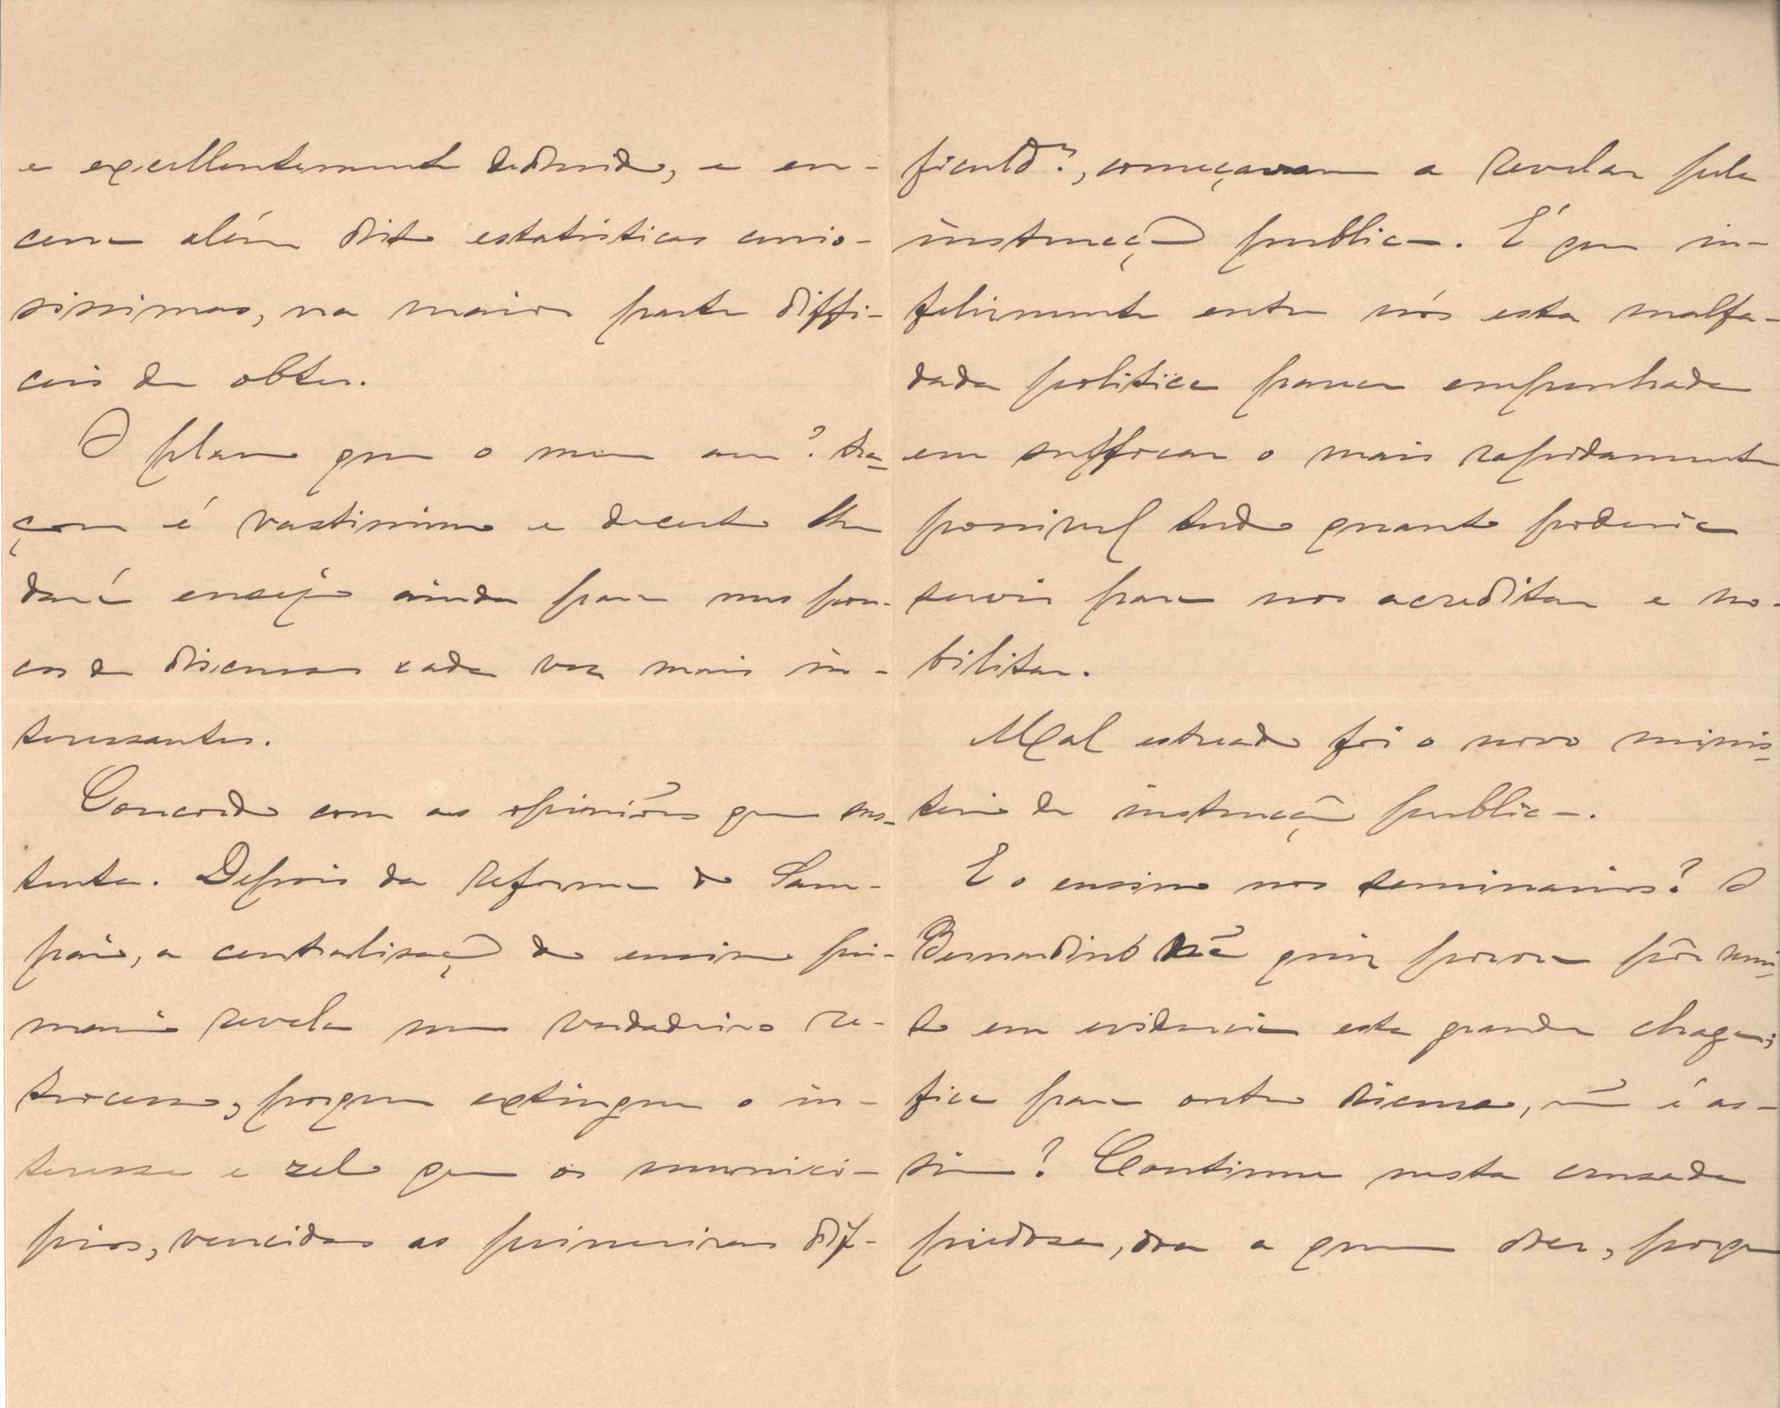 e excellentemente deduzido, e en-
cerra além disto estatisticas curio-
sissimas, na maior parte diffi-
ceis de obter.
O plano que o meu am.º tra-
çou é vastissimo e decerto lhe
dará ensejo ainda para uns pou-
cos de discursos cada vez mais in-
teressantes.
Concordo com as opiniões que sus-
tenta. Depois da reforma do Sam-
paio, a centralisação do ensino pri-
mario revela um verdadeiro re-
trocesso, porque extingue o in-
teresse e zelo que os munici-
pios, vencidas as primeiras dif-
ficuld.es, começavam a revelar pela
instrucção publica. É que in-
felizmente entre nós esta malfa-
dada politica parece empenhada
em suffocar o mais rapidamente
possivel tudo quanto poderia
servir para nos acreditar e no-
bilitar.
Mal estreado foi o novo minis-
terio de instrucção publica.
E o ensino nos seminarios? O
Bernardino não quiz porora pôr mui-
to em evidencia esta grande chaga;
fica para outro discurso, não é as-
sim? Continue nesta cruzada
piedosa, dôa a quem doer, porque